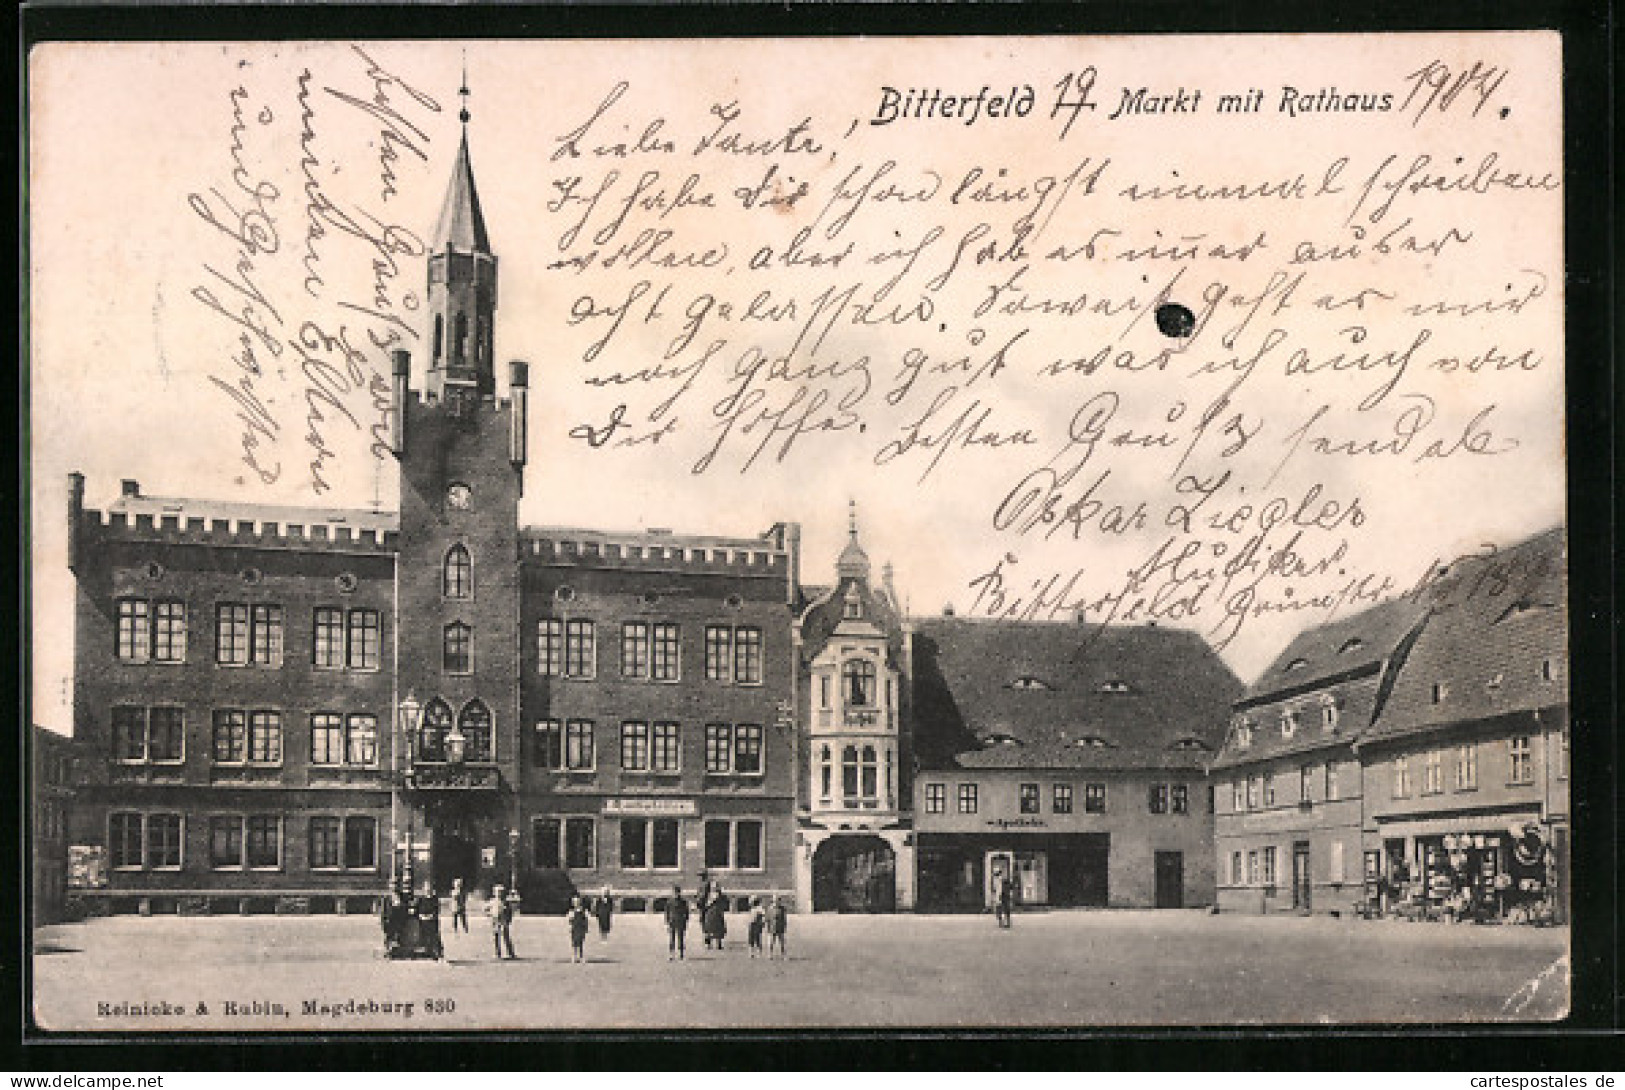 Bitterfeld 19. Markt mit Rathaus 1904.
Liebe Tante,!
Ich habe Dir schon längst einmal schreiben
wollen, aber ich hab es im̅er außer
acht gelassen. Soweit geht es mir
noch ganz gut was ich auch von
Dir hoffe. Besten Gruß sendet
Oskar Ziegler
Musiker.
Bitterfeld
besten Gruß von
meinen Eltern
und Geschwister.
Apotheke.
Reinicke & Rubin, Magdeburg 830
cartespostales de